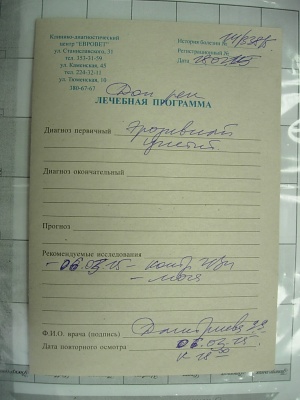 Клинико-диагностический
центр "ЕВРОВЕТ"
ул. Станиславского, 31
тел. 353-51-59
ул. Каменская, 45
тел. 224-32-11
ул. Тюменская, 10
380-67-63
История болезни №
Регистрационный №
Дата
ЛЕЧЕБНАЯ ПРОГРАММА
Диагноз первичный Эрозивный
цистит
Диагноз окончательный
Прогноз
Рекомендуемые исследования
- 06.03.15 - контр. УЗИ
- моча
Ф.И.О. врача (подпись) Дмитриева
Дата повторного осмотра 06.03.15.